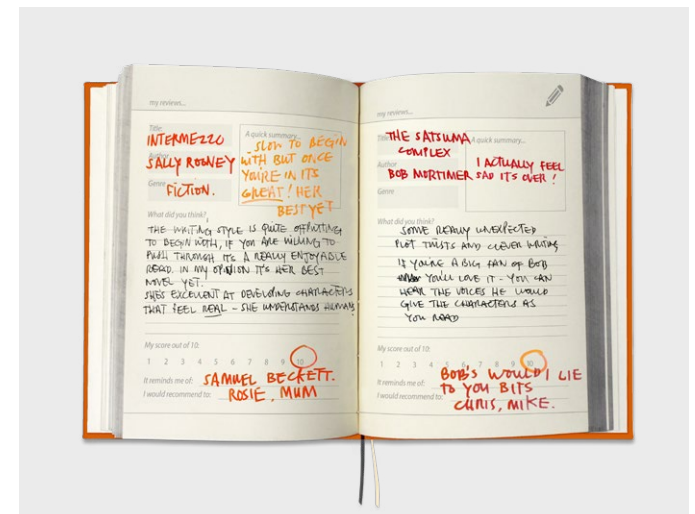 my reviews...
Title
INTERMEZZO
Author
SALLY ROONEY
Genre
FICTION.
A quick summary...
SLOW TO BEGIN
WITH BUT ONCE
YOU'RE IN ITS
GREAT! HER
BEST YET
What did you think?
THE WRITING STYLE IS QUITE OFFPUTTING
TO BEGIN WITH, IF YOU ARE WILLING TO
PUSH THROUGH ITS A REALLY ENJOYABLE
READ. IN MY OPINION IT'S HER BEST
NOVEL YET.
SHE'S EXCELLENT AT DEVELOPING CHARACTERS
THAT FEEL REAL - SHE UNDERSTANDS HUMANS
My score out of 10:
1 2 3 4 5 6 7 8 9 10
It reminds me of: SAMUEL BECKETT.
I would recommend to: ROSIE, MUM
my reviews...
Title
THE SATSUMA
COMPLEX
Author
BOB MORTIMER
Genre
A quick summary...
I ACTUALLY FEEL
SAD ITS OVER!
What did you think?
SOME REALLY UNEXPECTED
PLOT TWISTS AND CLEVER WRITING
IF YOU'RE A BIG FAN OF BOB
YOU'LL LOVE IT - YOU CAN
HEAR THE VOICES HE WOULD
GIVE THE CHARACTERS AS
YOU READ
My score out of 10:
1 2 3 4 5 6 7 8 9 10
It reminds me of: BOB'S WOULD I LIE
TO YOU BITS
I would recommend to: CHRIS, MIKE.